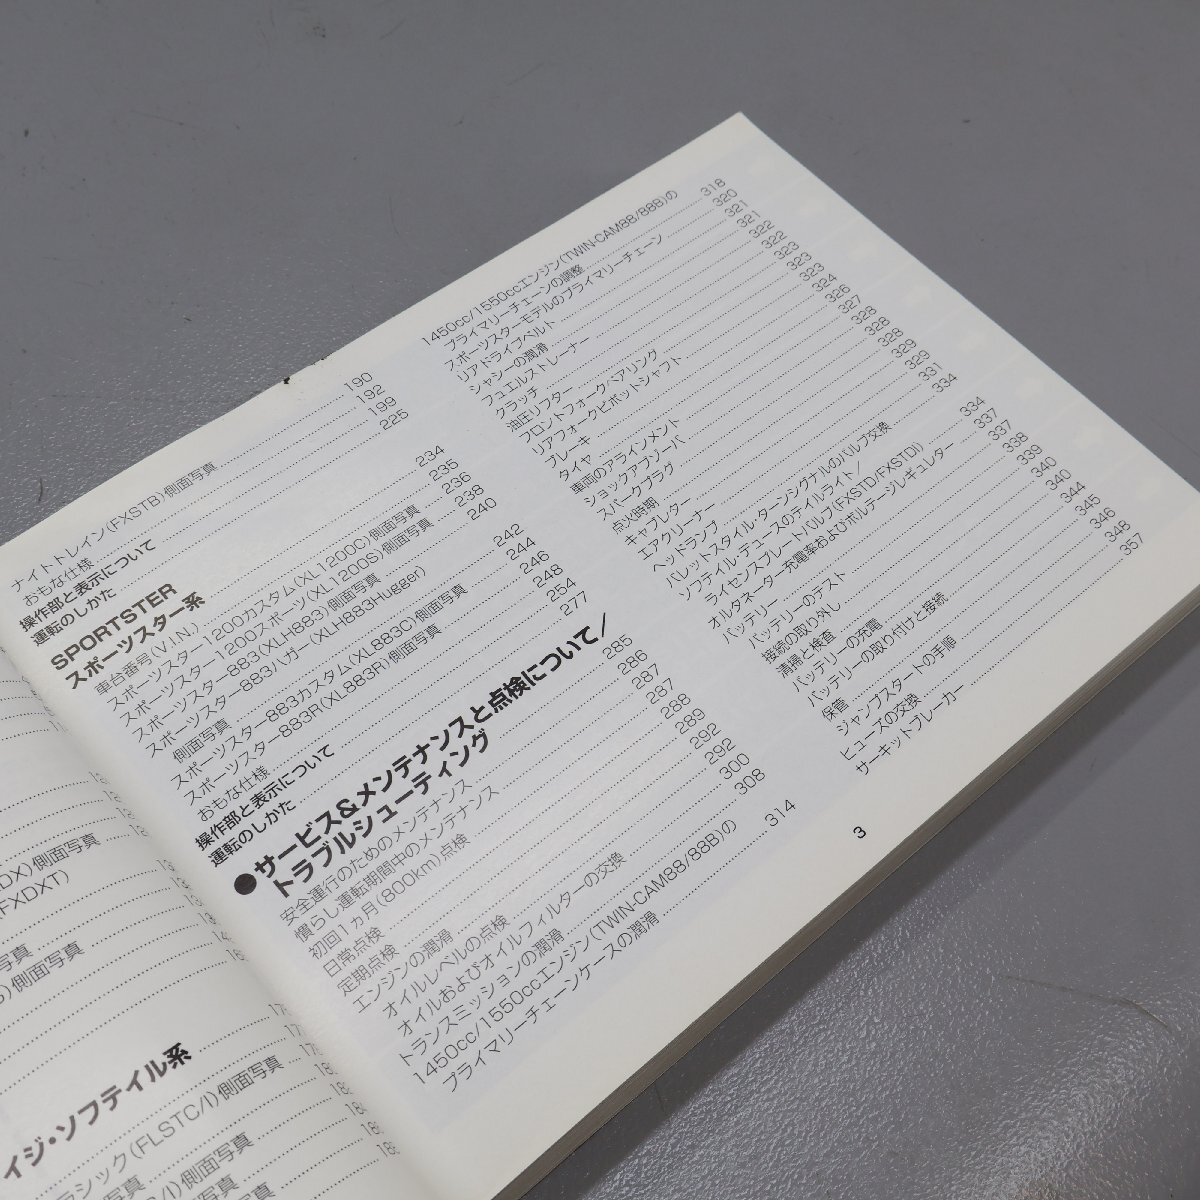 ナイトトレイン(FXSTB)側面写真 190
おもな仕様 192
操作部と表示について 199
運転のしかた 225
SPORTSTER
スポーツスター系
車台番号(V.I.N.) 234
スポーツスター1200カスタム(XL1200C)側面写真 235
スポーツスター1200スポーツ(XL1200S)側面写真 236
スポーツスター883(XLH883)側面写真 238
スポーツスター883ハガー(XLH883Hugger)
側面写真 240
スポーツスター883カスタム(XL883C)側面写真 242
スポーツスター883R(XL883R)側面写真 244
おもな仕様 246
操作部と表示について 248
運転のしかた 254
277
●サービス&メンテナンスと点検について/
トラブルシューティング 285
安全運行のためのメンテナンス 286
慣らし運転期間中のメンテナンス 287
初回1ヵ月(800km)点検 287
日常点検 288
定期点検 289
エンジンの潤滑 292
オイルレベルの点検 292
オイルおよびオイルフィルターの交換 300
トランスミッションの潤滑 308
1450cc/1550ccエンジン(TWIN-CAM88/88B)の
プライマリーチェーンケースの潤滑 314
1450cc/1550ccエンジン(TWIN-CAM88/88B)の
プライマリーチェーンの調整 318
スポーツスターモデルのプライマリーチェーン 320
リアドライブベルト 321
シャシーの潤滑 321
フューエルストレーナー 322
クラッチ 322
油圧リフター 323
フロントフォークベアリング 323
リアフォークピボットシャフト 323
ブレーキ 324
タイヤ 326
車両のアラインメント 327
ショックアブソーバ 328
スパークプラグ 328
点火時期 328
キャブレター 329
エアクリーナー 329
ヘッドランプ 331
バレットスタイル・ターンシグナルのバルブ交換 334
ソフテイル・デュースのテイルライト/
ライセンスプレートバルブ(FXSTD/FXSTDI) 334
オルタネーター充電率およびボルテージレギュレター 337
バッテリー 337
バッテリーのテスト 338
接続の取り外し 339
清掃と検査 340
バッテリーの充電 340
バッテリーの取り付けと接続 344
保管 345
ジャンプスタートの手順 346
ヒューズの交換 348
サーキットブレーカー 357
3
DX)側面写真
FXDXT)
写真
側面写真
ィジ・ソフテイル系
ラシック(FLSTC/I)側面写真
側面写真